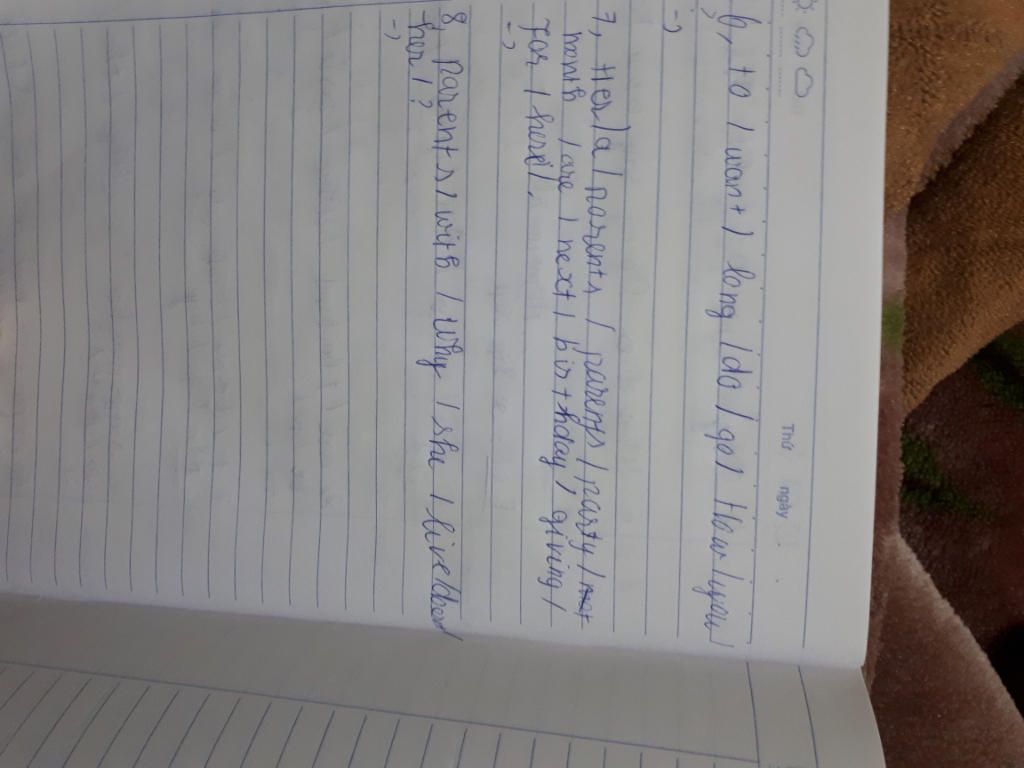 Thứ ngày
6, to / want / long / do / go / How / you
->
7, Her / a / parents / parings / party /
month / are / next / birthday / giving /
for / here /.
->
8, parents / with / Why / she / live /
her / ?
->